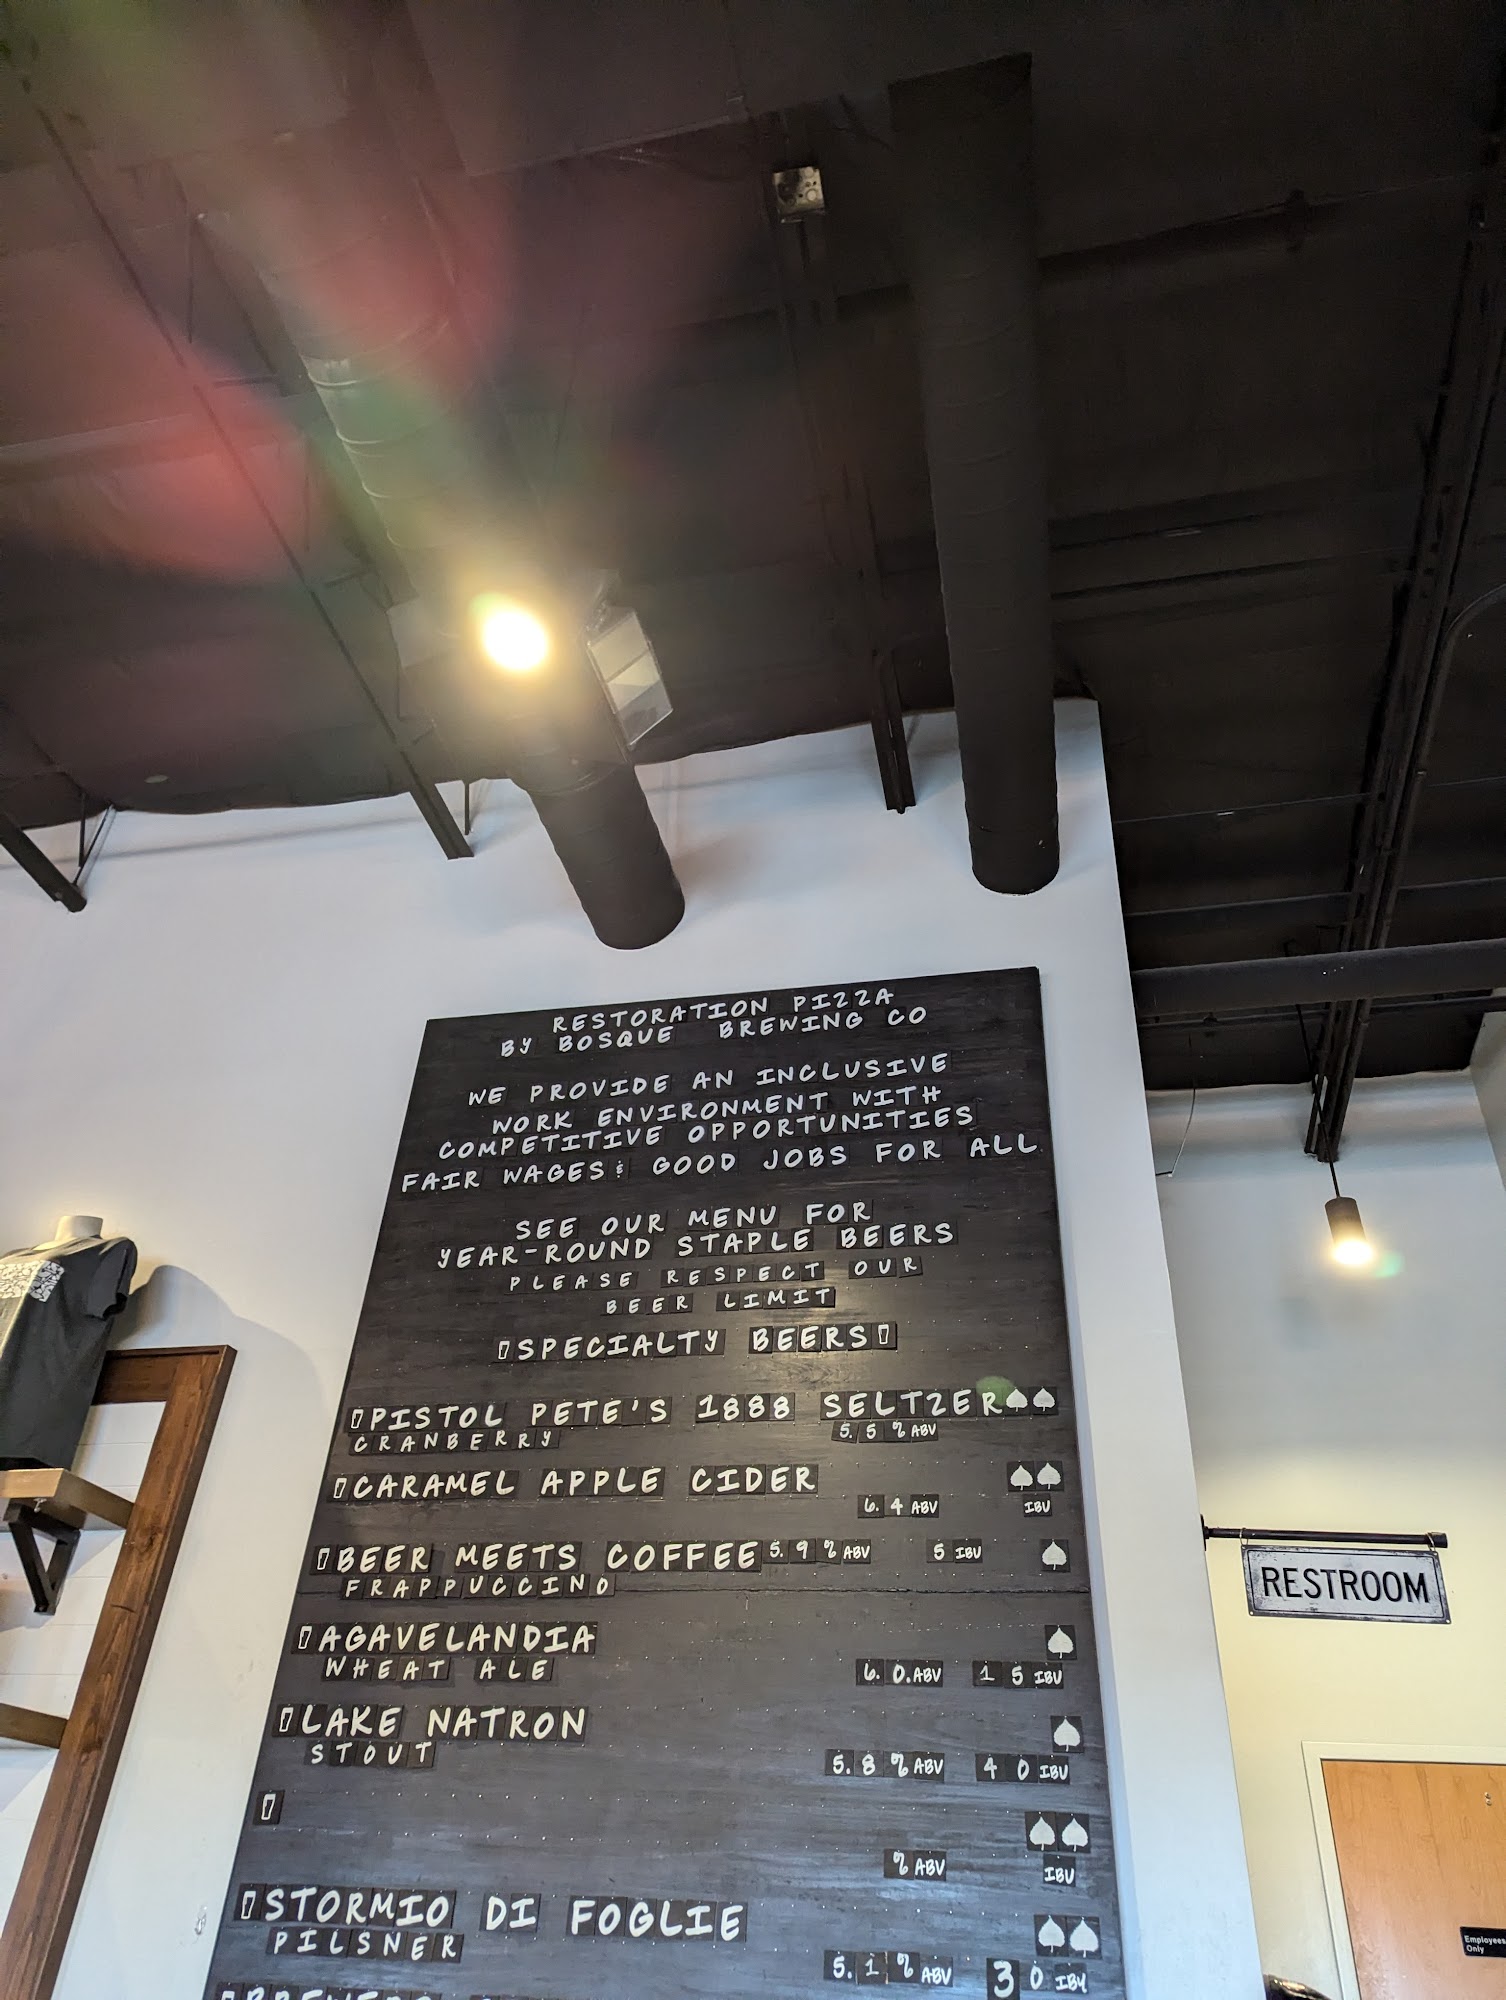 RESTORATION PIZZA
BY BOSQUE BREWING CO
WE PROVIDE AN INCLUSIVE
WORK ENVIRONMENT WITH
COMPETITIVE OPPORTUNITIES
FAIR WAGES & GOOD JOBS FOR ALL
SEE OUR MENU FOR
YEAR-ROUND STAPLE BEERS
PLEASE RESPECT OUR
BEER LIMIT
SPECIALTY BEERS
PISTOL PETE'S 1888 SELTZER
CRANBERRY 5.5% ABV
CARAMEL APPLE CIDER
6.4 ABV IBU
BEER MEETS COFFEE 5.9% ABV 5 IBU
FRAPPUCCINO
AGAVELANDIA
WHEAT ALE 6.0. ABV 15 IBU
LAKE NATRON
STOUT 5.8% ABV 40 IBU
% ABV IBU
STORMIO DI FOGLIE
PILSNER 5.1% ABV 30 IBU
RESTROOM
Employees
Only